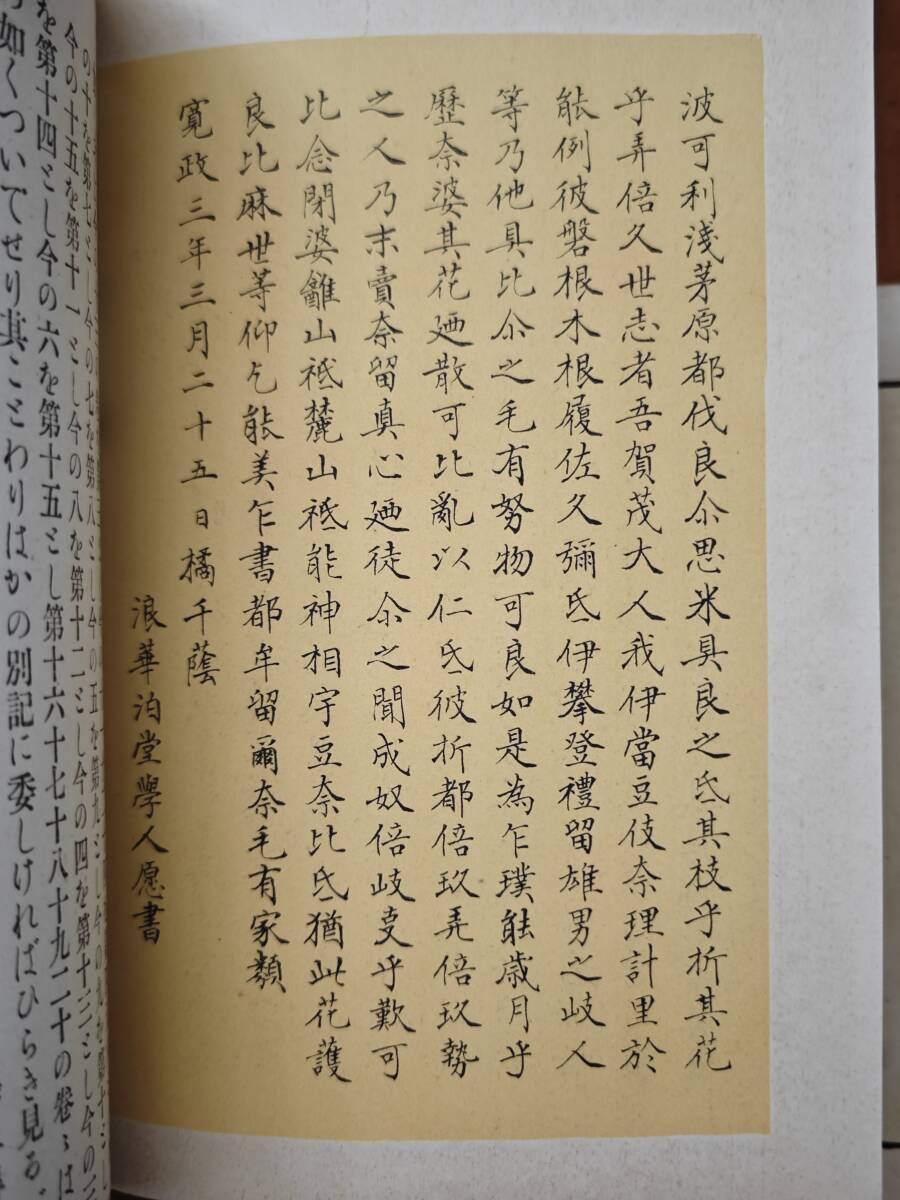 波可利淺茅原都伐良尒思米具良之氐其枝乎折其花
乎弄倍久世志者吾賀茂大人我伊當豆伎奈理計里於
能例彼磐根木根履佐久彌氐伊攀登禮留雄男之岐人
等乃他具比尒之毛有努物可良如是為乍璞能歳月乎
歷奈婆其花廼散可比亂以仁氐彼折都倍玖弄倍玖勢
之人乃末賣奈留真心廼徒尒之聞成奴倍岐叓乎歎可
比念閇婆雖山祗麓山祗能神相宇豆奈比氐猶此花護
良比麻世等仰乞能美乍書都牟留爾奈毛有家類
寛政三年三月二十五日橘千蔭
浪華泊堂學人愿書
を第十四とし今の六を第十五とし第十六十七十八十九二十の卷〻は
の如くついてせり其ことわりはかの別記に委しければひらき見る